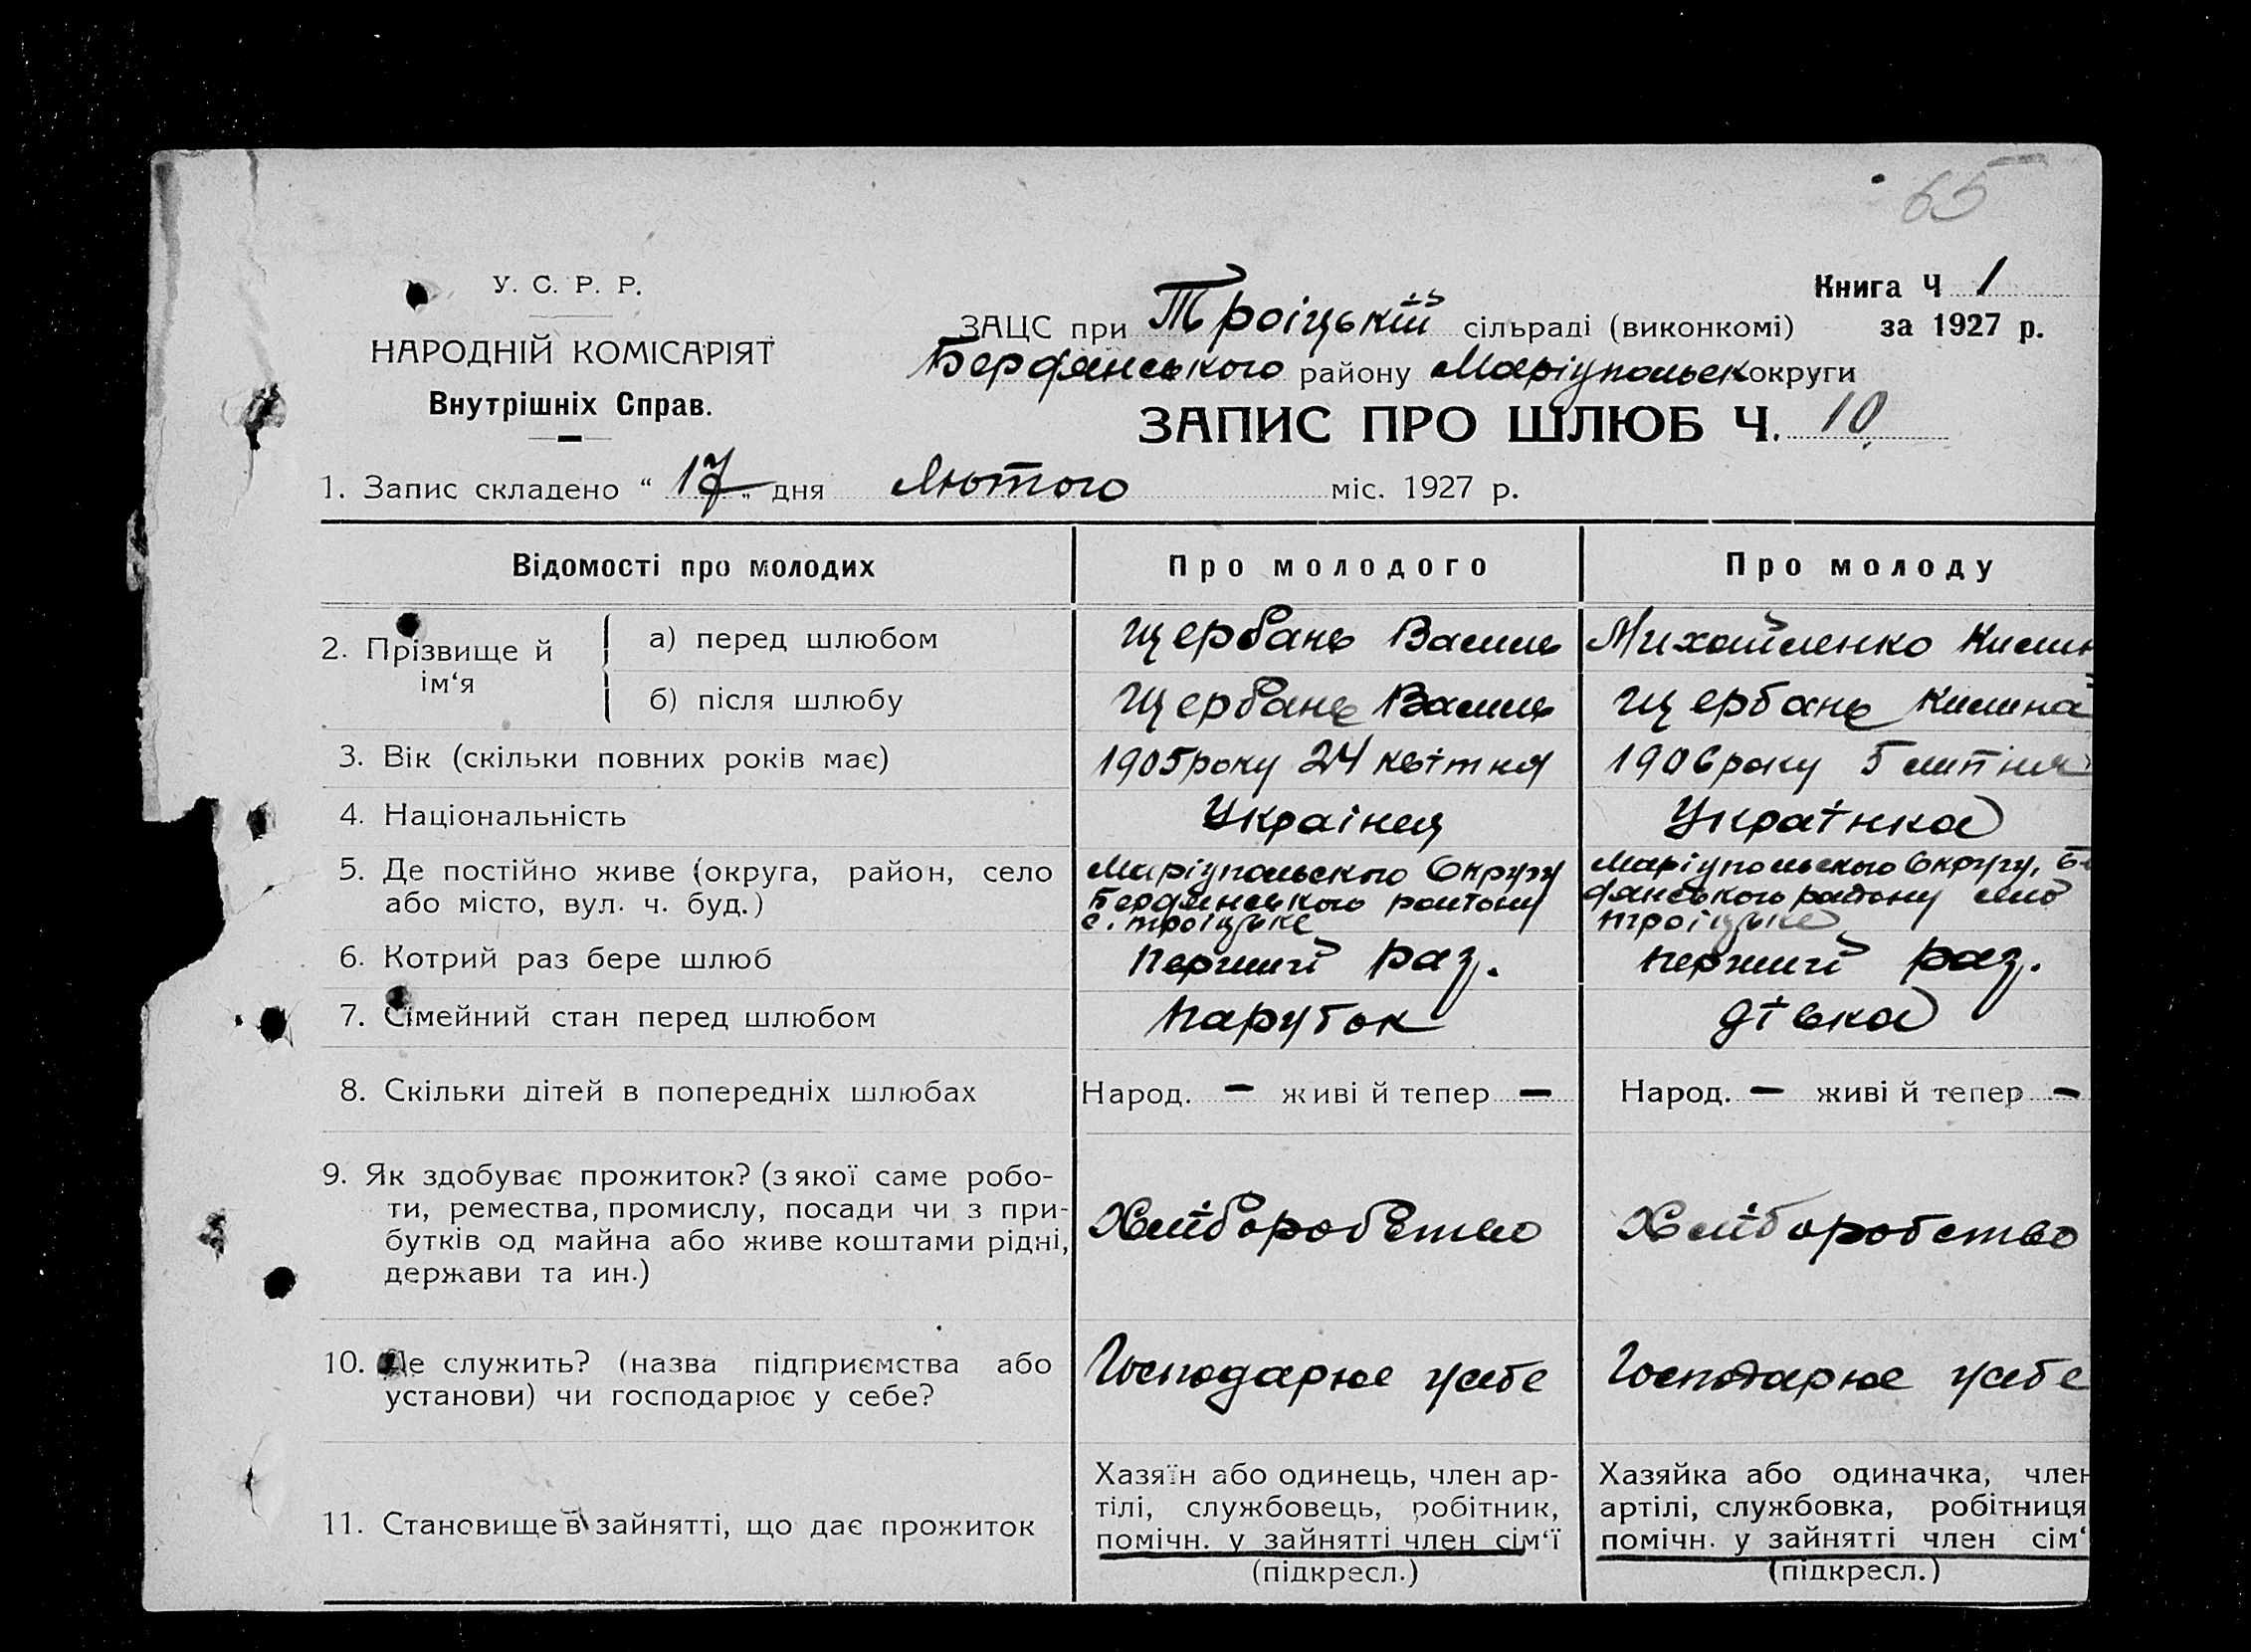 65
У. С. Р. Р.
НАРОДНІЙ КОМІСАРІЯТ
Внутрішніх Справ.
Книга Ч 1
ЗАЦС при Троіцькій сільраді (виконкомі) за 1927 р.
Бердянського району Маріупольськ округи
ЗАПИС ПРО ШЛЮБ Ч. 10
1. Запис складено “ 17 „ дня Лютого міс. 1927 р.
Відомості про молодих
Про молодого
Про молоду
2. Прізвище й ім‘я
а) перед шлюбом
Щербань Василь
Михайленко Килин
б) після шлюбу
Щербань Василь
Щербань Килина
3. Вік (скільки повних років має)
1905 року 24 квітня
1906 року 5 липня
4. Національність
Украінец
Украінка
5. Де постійно живе (округа, район, село
або місто, вул. ч. буд.)
Маріупольского Округу
Бердянського району
с. Троіцьке
Маріупольского Округу, Бе
дянського району село
Троіцьке
6. Котрий раз бере шлюб
Перший раз.
Перший раз.
7. Сімейний стан перед шлюбом
Парубок
Дівка
8. Скільки дітей в попередніх шлюбах
Народ. — живі й тепер —
Народ. — живі й тепер —
9. Як здобуває прожиток? (з якої саме робо-
ти, ремества, промислу, посади чи з при-
бутків од майна або живе коштами рідні,
держави та ин.)
Хліборобство
Хліборобство
10. Де служить? (назва підприємства або
установи) чи господарює у себе?
Господарює у себе
Господарює у себе
11. Становище в зайнятті, що дає прожиток
Хазяїн або одинець, член ар-
тілі, службовець, робітник,
помічн. у зайнятті член сім‘ї
(підкресл.)
Хазяйка або одиначка, член
артілі, службовка, робітниця
помічн. у зайнятті член сім‘
(підкресл.)